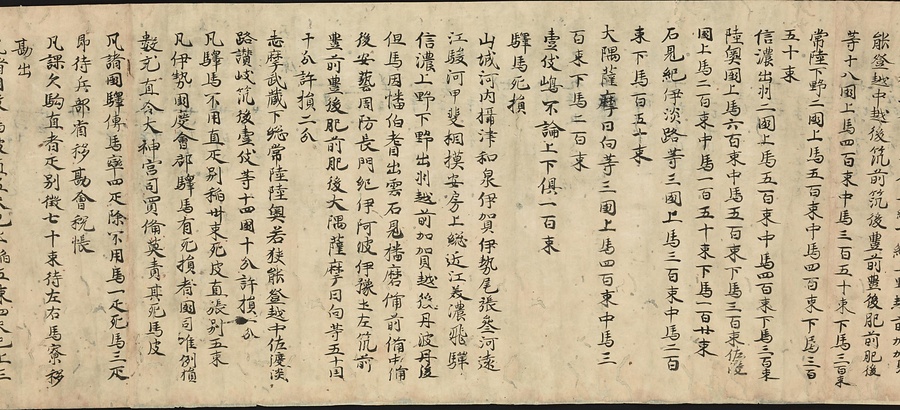 能登越中越後筑前筑後豊前豊後肥前肥後
等十八國上馬四百束中馬三百五十束下馬三百束
常陸下野二國上馬五百束中馬四百束下馬三百
五十束
信濃出羽二國上馬五百束中馬四百束下馬三百束
陸奥國上馬六百束中馬五百束下馬三百束佐渡
國上馬二百束中馬一百五十束下馬一百廿束
石見紀伊淡路等三國上馬三百束中馬二百
束下馬百五十束
大隅薩摩日向等三國上馬四百束中馬三
百束下馬二百束
壹伎嶋不論上下俱一百束
驛馬死損
山城河内攝津和泉伊賀伊勢尾張叁河遠
江駿河甲斐相摸安房上総近江美濃飛驒
信濃上野下野出羽越前加賀越後丹波丹後
但馬因幡伯耆出雲石見播磨備前備中備
後安藝周防長門紀伊阿波伊豫土左筑前
豊前豊後肥前肥後大隅薩摩日向等五十國
十分許損二分
志摩武蔵下総常陸陸奥若狭能登越中佐渡淡
路讃岐筑後壹伎等十四國十分許損一分
凡驛馬不用直疋別稲卅束死皮直張別五束
凡伊勢國度會郡驛馬有死損者國司唯例損
数充直令大神宮司買備莫責其死馬皮
凡諸國驛傳馬率四疋除不用馬一疋死馬三疋
即待兵部省移勘會税帳
凡課欠駒直者疋別徴七十束待左右馬寮移
勘出